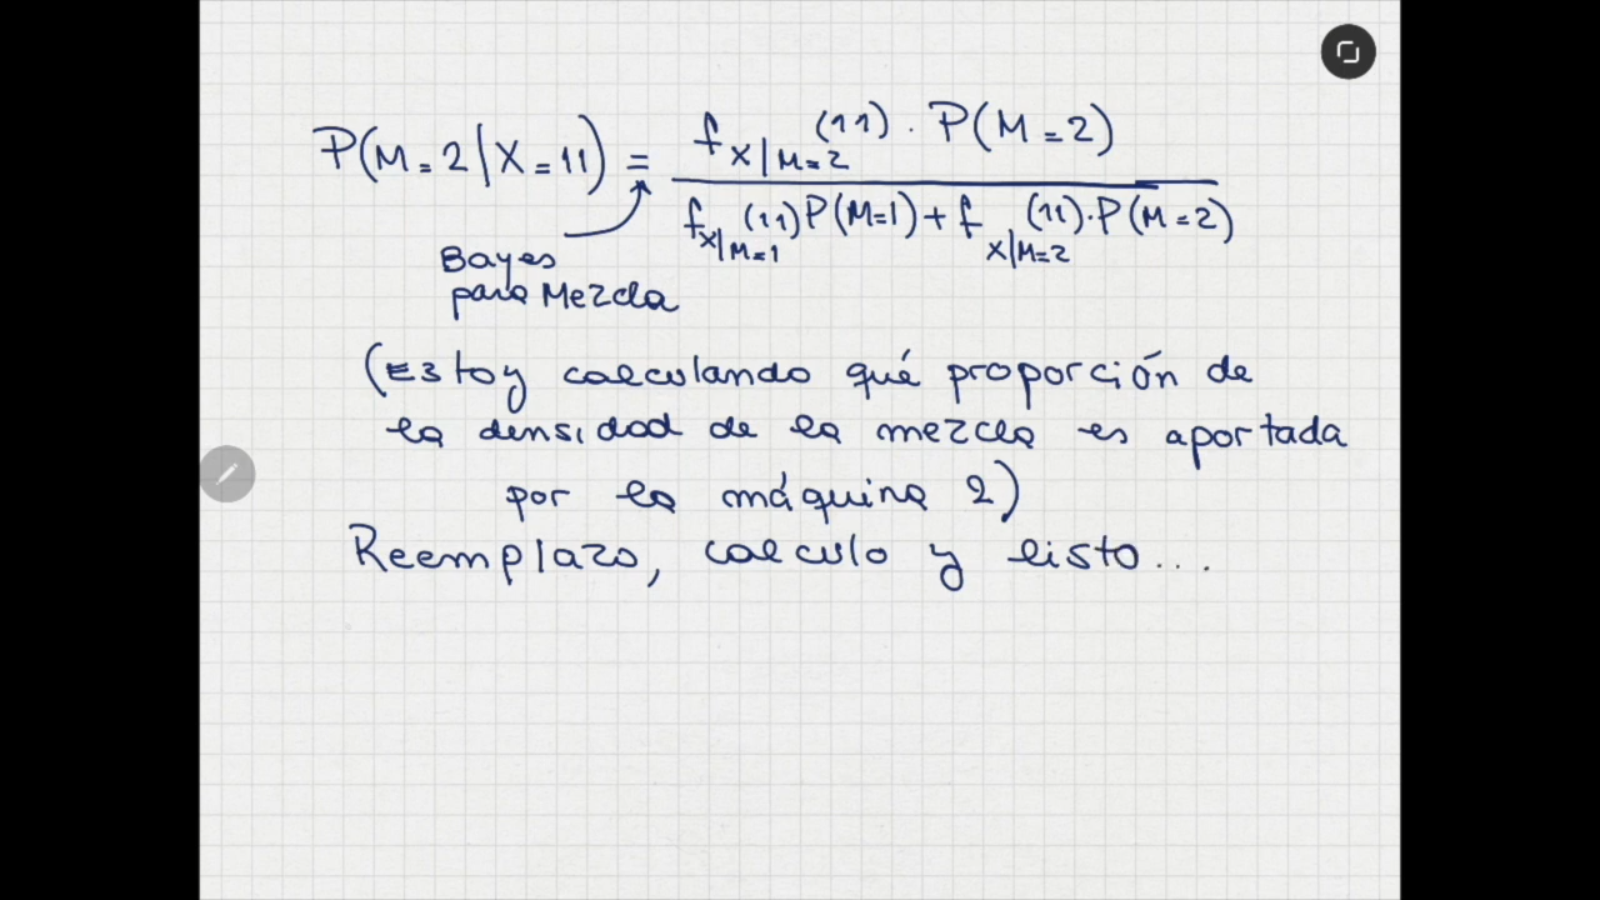 P(M=2|X=11) = f_{X|M=2}(11) · P(M=2) / f_{X|M=1}(11) P(M=1) + f_{X|M=2}(11) · P(M=2)
Bayes
para Mezcla
(Estoy calculando qué proporción de
la densidad de la mezcla es aportada
por la máquina 2)
Reemplazo, calculo y listo...